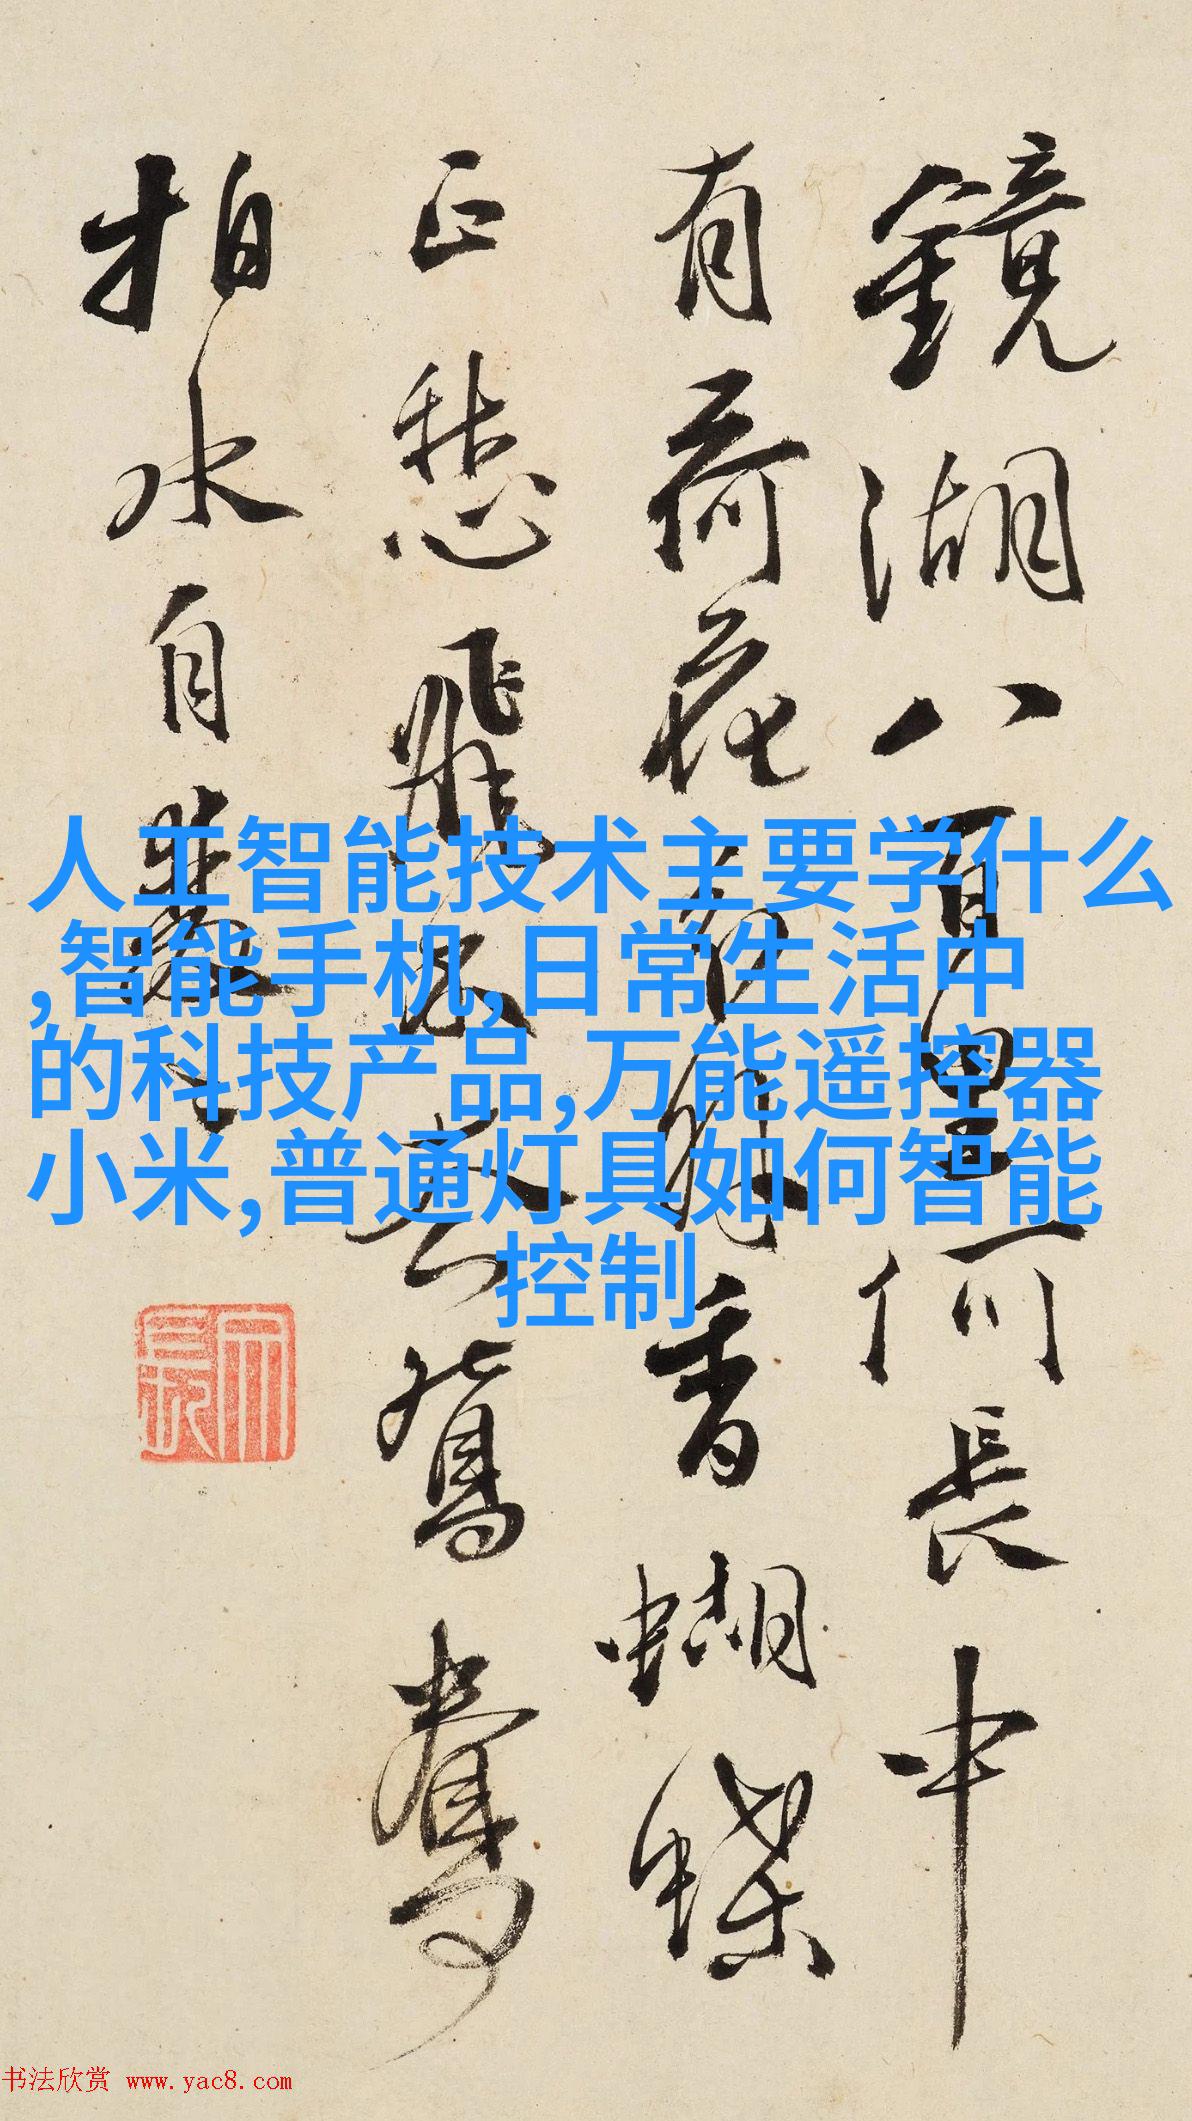 鏡湖八百里何長中
有荷花有解香蝴蝶
正愁飛不去鴛鴦
拍水自雙〻
人工智能技术主要学什么
,智能手机,日常生活中
的科技产品,万能遥控器
小米,普通灯具如何智能
控制
书法欣赏 www.yac8.com